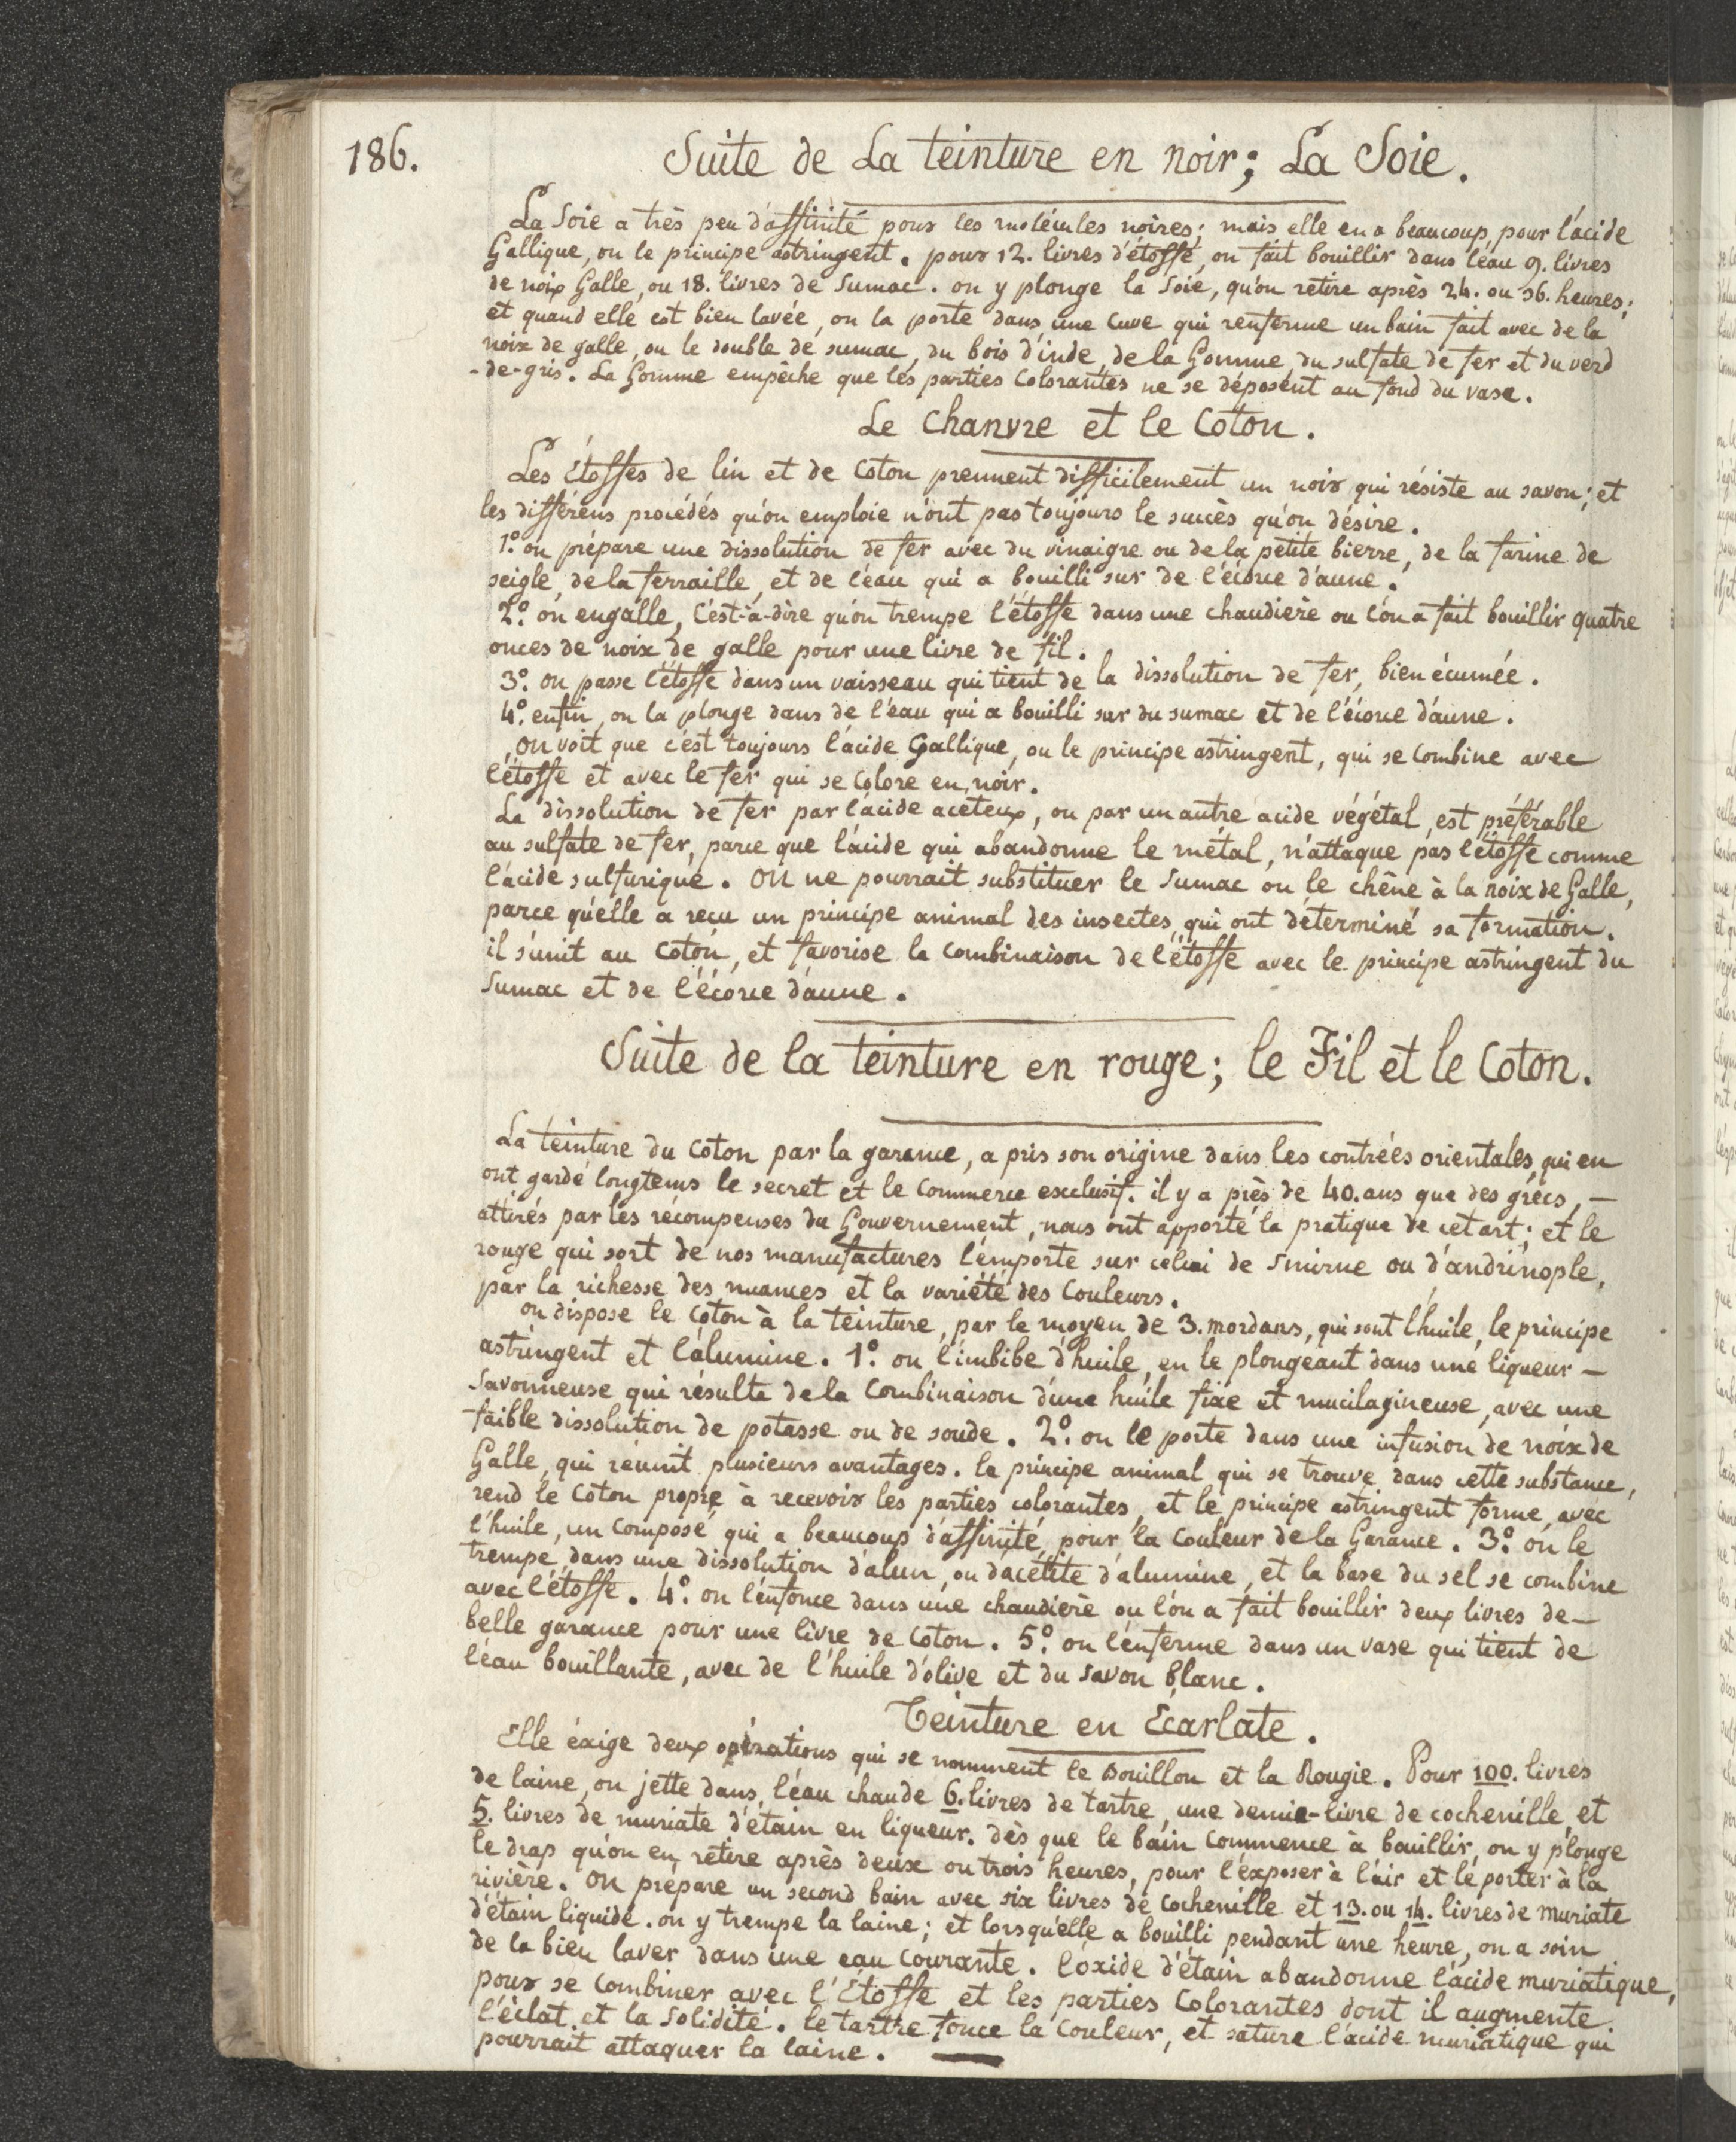 186.
Suite de La teinture en noir; La Soie.
La Soie a très peu d'affinité pour les molécules noires; mais elle en a beaucoup, pour l'acide
Gallique, ou le principe astringent. pour 12. livres d'étoffe, on fait bouillir dans l'eau 9. livres
de noix Galle, ou 18. livres de Sumac. on y plonge la Soie, qu'on retire après 24. ou 36. heures;
et quand elle est bien lavée, on la porte dans une Cuve qui renferme un bain fait avec de la
noix de galle, ou le double de sumac, du bois d'inde, de la Gomme, du sulfate de fer et du verd
-de-gris. La Gomme empeche que les parties Colorantes ne se déposent au fond du vase.
Le Chanvre et le Coton.
Les Étoffes de lin et de Coton prennent difficilement un noir qui résiste au savon; et
les différens procédés qu'on emploie n'ont pas toujours le succès qu'on désire.
1.° on prépare une dissolution de fer avec du vinaigre ou de la petite bierre, de la farine de
seigle, de la ferraille, et de l'eau qui a bouilli sur de l'écorce d'aune.
2.° on engalle, C'est-à-dire qu'on trempe l'étoffe dans une chaudière ou l'on a fait bouillir quatre
onces de noix de galle pour une livre de fil.
3.° on passe l'étoffe dans un vaisseau qui tient de la dissolution de fer, bien écumée.
4.° enfin, on la plonge dans de l'eau qui a bouilli sur du sumac et de l'écorce d'aune.
on voit que c'est toujours l'acide Gallique, ou le principe astringent, qui se Combine avec
l'étoffe et avec le fer qui se Colore en noir.
La dissolution de fer par l'acide aceteux, ou par un autre acide végétal, est préférable
au sulfate de fer, parce que l'acide qui abandonne le métal, n'attaque pas l'étoffe comme
l'acide sulfurique. On ne pourrait substituer le Sumac ou le chêne à la noix de Galle,
parce qu'elle a reçu un principe animal des insectes qui ont déterminé sa formation.
il s'unit au Coton, et favorise la Combinaison de l'étoffe avec le principe astringent du
Sumac et de l'écorce d'aune.
Suite de la teinture en rouge; le Fil et le Coton.
La teinture du Coton par la garance, a pris son origine dans les contrées orientales, qui en
ont gardé longtems le secret et le Commerce exclusif. il y a près de 40. ans que des grecs, —
attirés par les récompenses du Gouvernement, nous ont apporté la pratique de cet art; et le
rouge qui sort de nos manufactures l'emporte sur celui de Smirne ou d'andrinople,
par la richesse des nuances et la variété des Couleurs.
on dispose le Coton à la teinture, par le moyen de 3. mordans, qui sont l'huile, le principe
astringent et l'alumine. 1.° on l'imbibe d'huile, en le plongeant dans une liqueur —
Savonneuse qui résulte de la Combinaison d'une huile fixe et mucilagineuse, avec une
faible dissolution de potasse ou de soude. 2.° on le porte dans une infusion de noix de
Galle, qui réunit plusieurs avantages. le principe animal qui se trouve dans cette substance,
rend le Coton propre à recevoir les parties colorantes, et le principe astringent forme, avec
l'huile, un Composé qui a beaucoup d'affinité, pour la Couleur de la Garance. 3.° on le
trempe dans une dissolution d'alun, ou d'acétite d'alumine, et la base du sel se combine
avec l'étoffe. 4.° on l'enfonce dans une chaudière ou l'on a fait bouillir deux livres de —
belle garance pour une livre de Coton. 5.° on l'enferme dans un vase qui tient de
l'eau bouillante, avec de l'huile d'olive et du savon blanc.
Teinture en Écarlate.
Elle éxige deux opérations qui se nomment le Bouillon et la Rougie. Pour 100. livres
de laine, on jette dans l'eau chaude 6. livres de tartre, une demie-livre de cochenille, et
5. livres de muriate d'étain en liqueur. dès que le bain Commence à bouillir, on y plonge
le drap qu'on en retire après deux ou trois heures, pour l'exposer à l'air et le porter à la
rivière. On prépare un second bain avec six livres de Cochenille et 13. ou 14. livres de muriate
d'étain liquide. on y trempe la laine; et lorsqu'elle a bouilli pendant une heure, on a soin
de la bien laver dans une eau Courante. l'oxide d'étain abandonne l'acide muriatique,
pour se Combiner avec l'Étoffe et les parties Colorantes dont il augmente
l'éclat et la Solidité. le tartre fonce la Couleur, et sature l'acide muriatique qui
pourrait attaquer la laine.